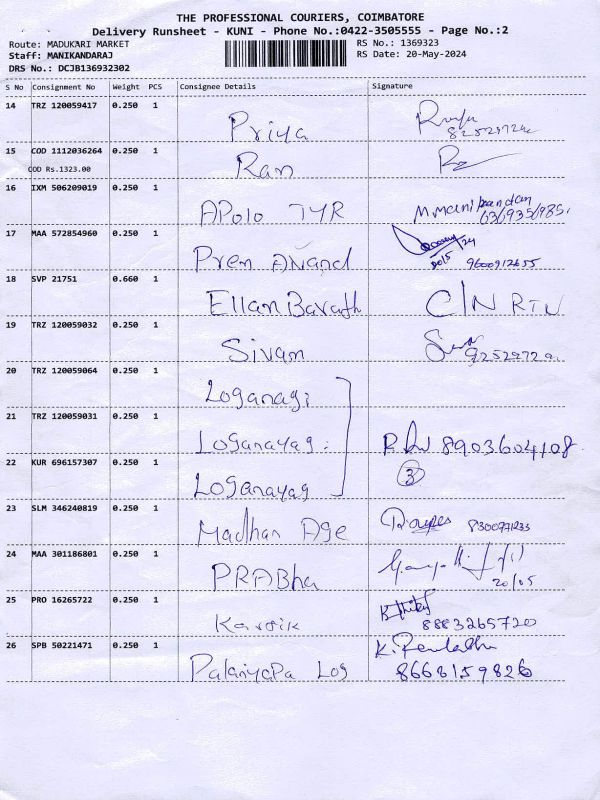 THE PROFESSIONAL COURIERS, COIMBATORE
Delivery Runsheet - KUNI - Phone No.:0422-3505555 - Page No.:2
Route: MADUKARI MARKET
RS No.: 1369323
Staff: MANIKANDARAJ
RS Date: 20-May-2024
DRS No.: DCJB136932302
S No Consignment No Weight PCS Consignee Details Signature
14 TRZ 120059417 0.250 1
Priya
15 COD 1112036264 0.250 1
COD Rs.1323.00
Ran
16 IXM 506209019 0.250 1
APolo TYR M.manikandan
17 MAA 572854960 0.250 1
Prem ANand 20/5/24 9600912655
18 SVP 21751 0.660 1
Ellan Barath C/N RTN
19 TRZ 120059032 0.250 1
Sivam
20 TRZ 120059064 0.250 1
Loganagi
21 TRZ 120059031 0.250 1
Loganayagi 8903604108
22 KUR 696157307 0.250 1
Loganayag 3
23 SLM 346240819 0.250 1
Madhan Age 8300771233
24 MAA 301186801 0.250 1
PRABha 20/05
25 PRO 16265722 0.250 1
Karsik 8883265720
26 SPB 50221471 0.250 1
PalaniyaPa Log 8668159826